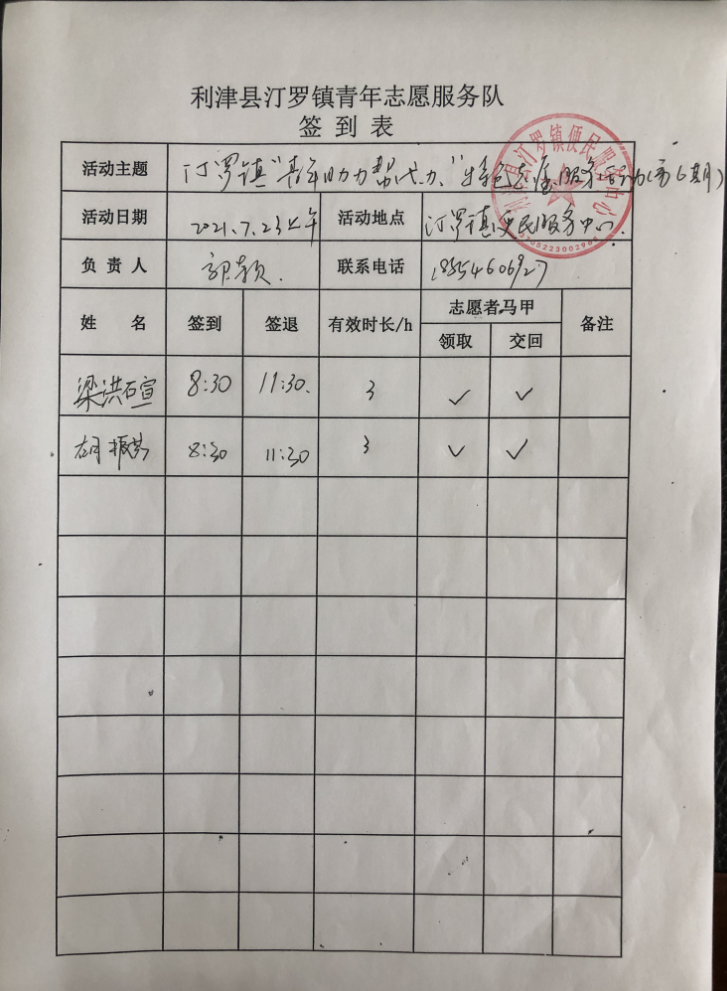 利津县汀罗镇青年志愿服务队
签到表
活动主题 汀罗镇“青年助力帮代办”特色志愿服务活动(第6期)
活动日期 2021.7.23上午 活动地点 汀罗镇便民服务中心.
负责人 郭颖. 联系电话
姓名 签到 签退 有效时长/h 志愿者马甲 备注
领取 交回
梁洪宣 8:30 11:30. 3 ✓ ✓
胡振 8:30 11:30 3 ✓ ✓
利津县汀罗镇便民服务中心